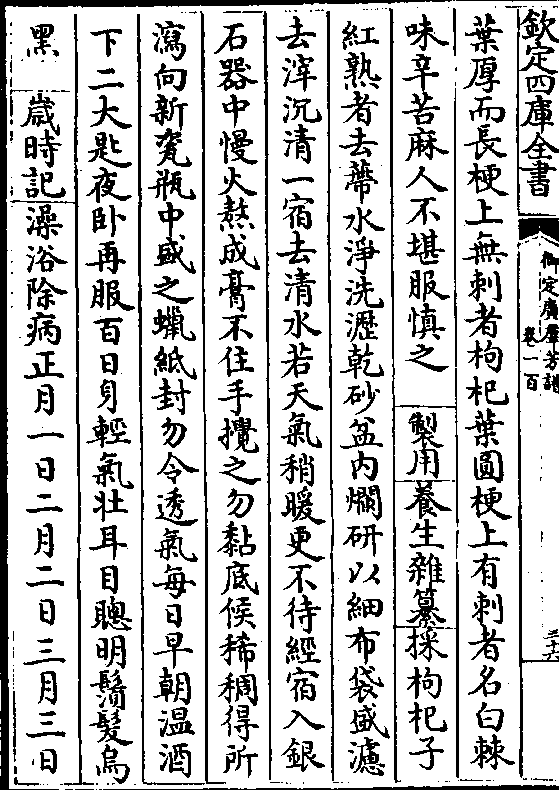 欽定四庫全書
御定廣羣芳譜
卷一百
三十六
葉厚而長梗上無刺者枸杞葉圓梗上有刺者名白棘
味辛苦麻人不堪服慎之 製用 養生雜纂採枸杞子
紅熟者去蔕水淨洗瀝乾砂盆内爛研以細布袋盛濾
去滓沉清一宿去清水若天氣稍暖更不待經宿入銀
石器中慢火熬成膏不住手攪之勿黏底候稀稠得所
瀉向新瓷瓶中盛之蠟紙封勿令透氣每日早朝温酒
下二大匙夜卧再服百日身輕氣壯耳目聰明鬚髮烏
黑 歳時記澡浴除病正月一日二月二日三月三日